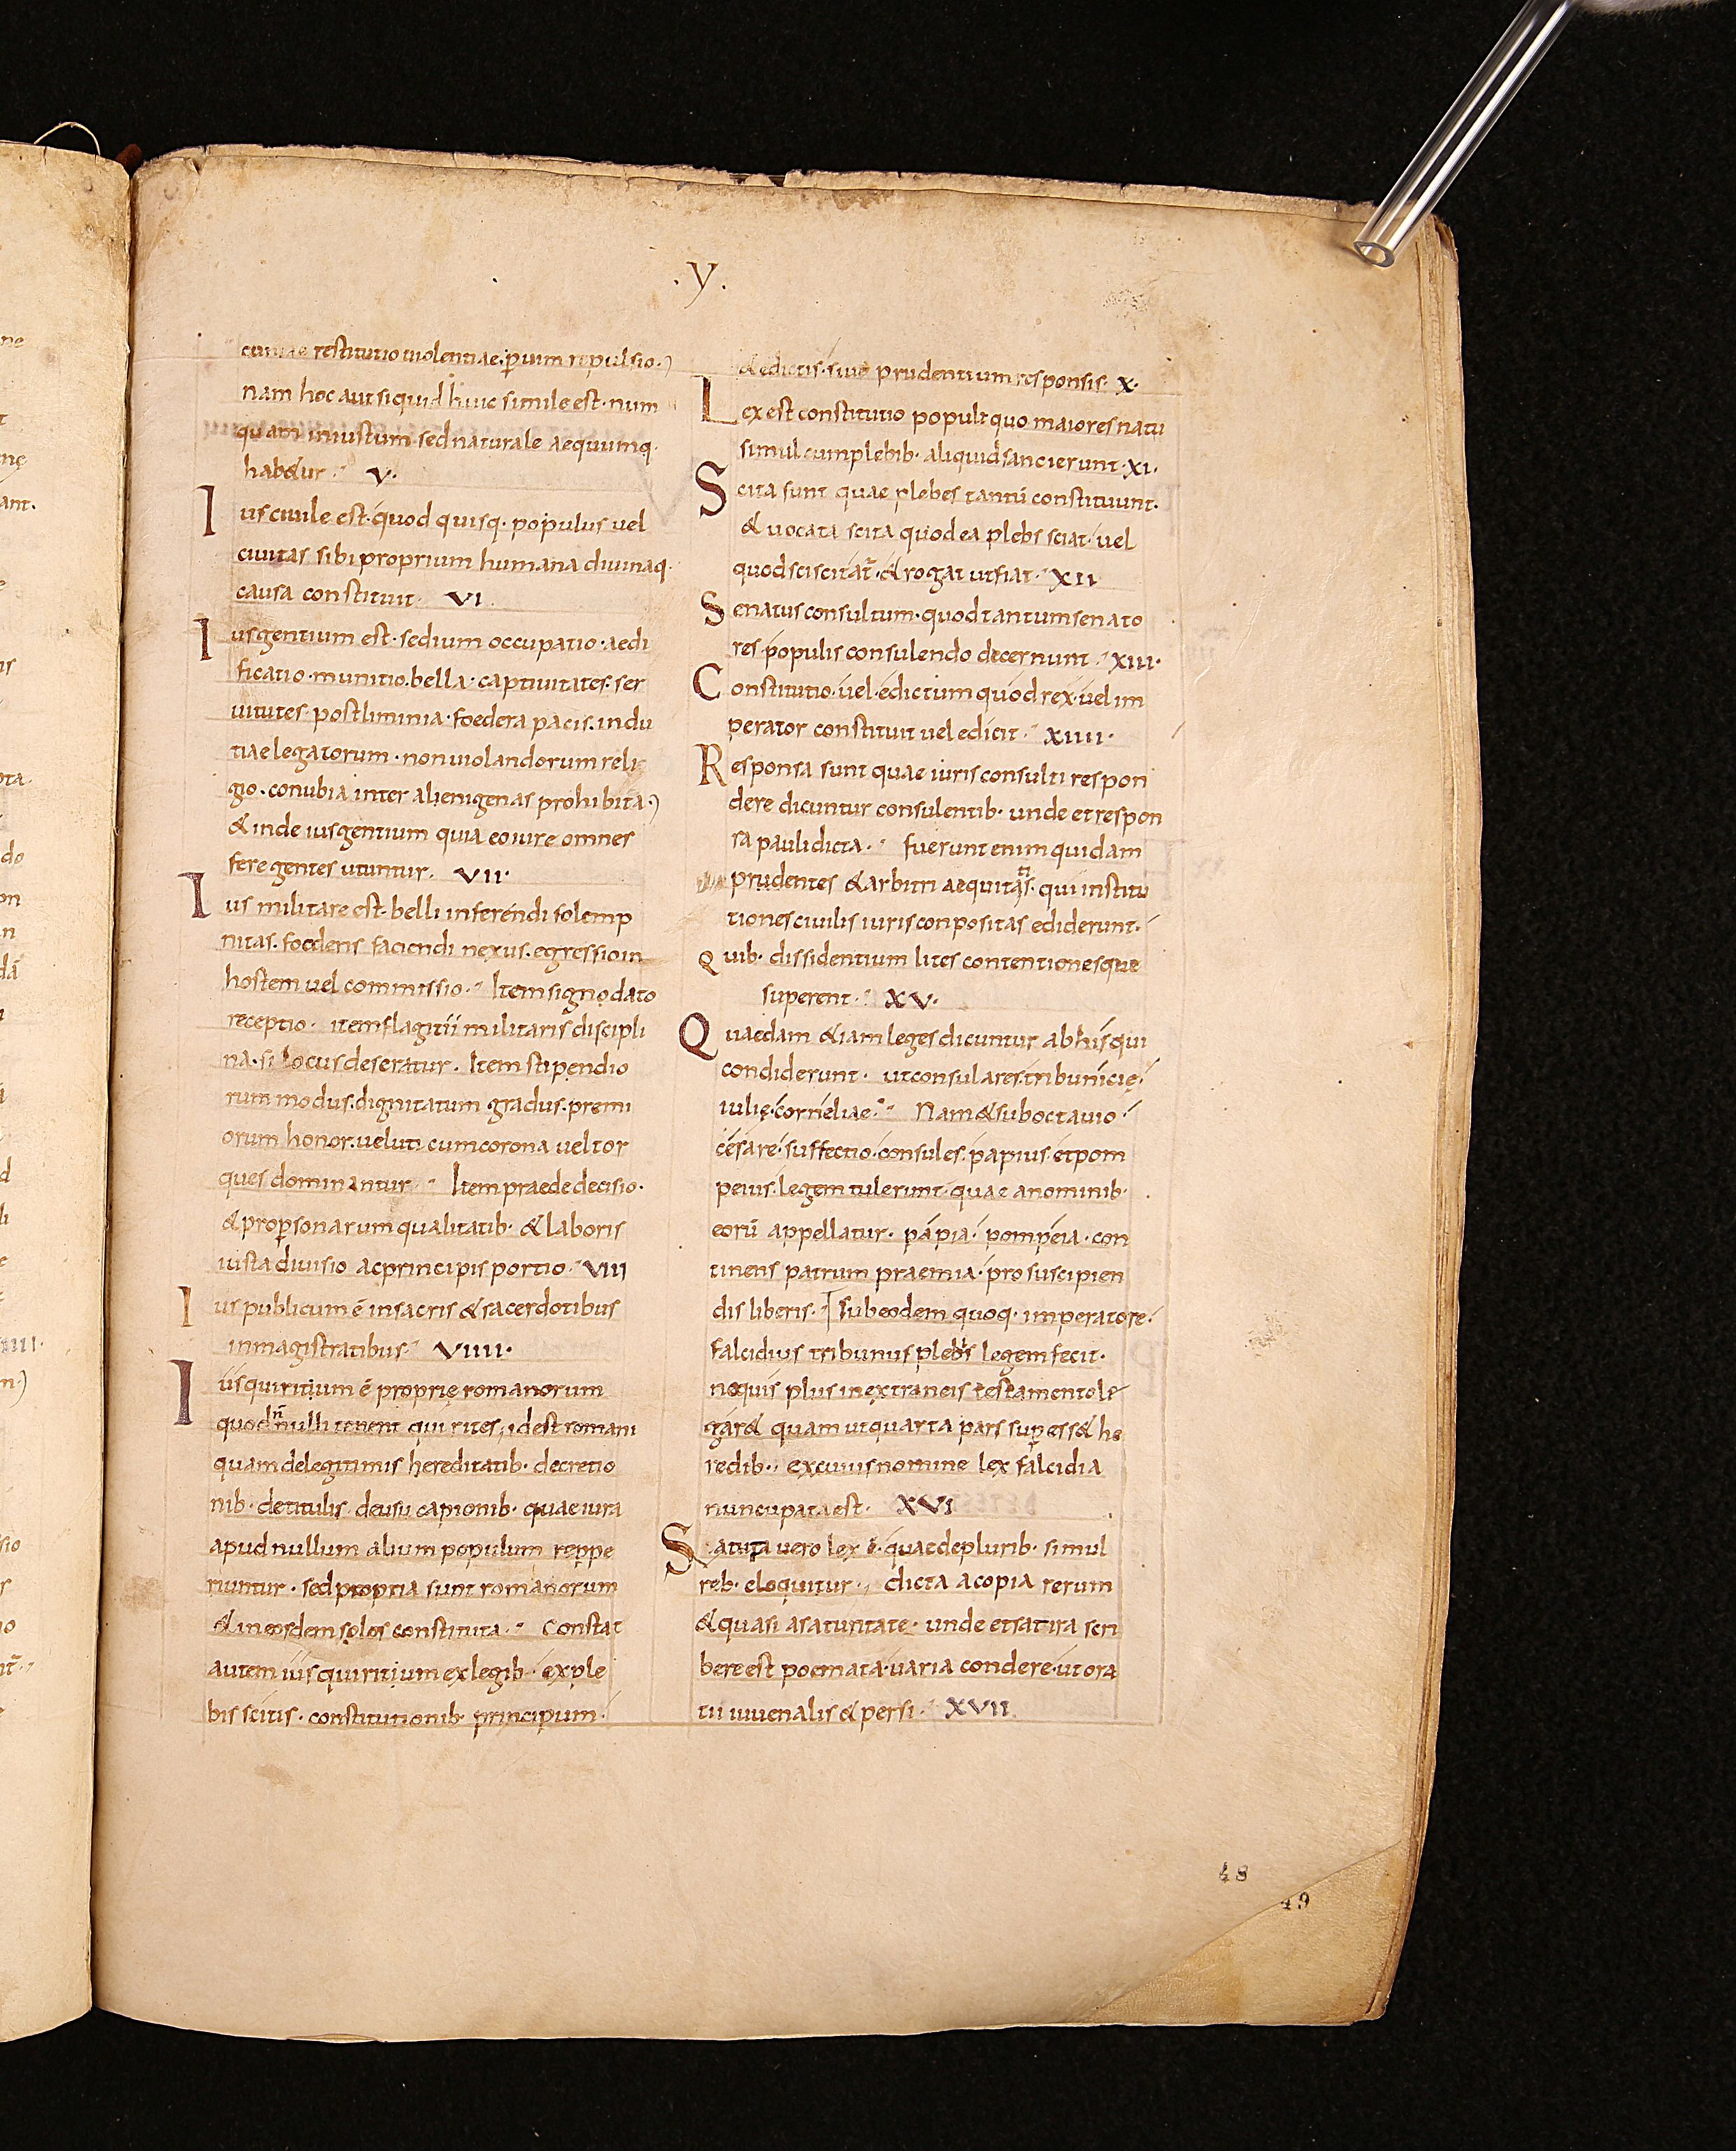 .y.
cuniae restitutio uiolentiae puim repulsio.
nam hoc aut siquid huic simile est. num
quam iniustum. sed naturale aequumq.
hab&ur. V.
Ius ciuile est. quod quisq. populus uel
ciuitas sibi proprium humana diuinaq.
causa constituit. VI.
Ius gentium est. sedium occupatio. aedi
ficatio. munitio. bella. captiuitates. ser
uitutes. postliminia. foedera pacis. indu
tiae legatorum. non uiolandorum reli
gio. conubia inter alienigenas prohibita.
& inde ius gentium quia eo iure omnes
fere gentes utuntur. VII.
Ius militare est. belli inferendi solemp
nitas. foederis faciendi nexus. egressio in
hostem uel commissio. Item signo dato
receptio. item flagitii militaris discipli
na. si locus deseratur. Item stipendio
rum modus. dignitatum gradus. premi
orum honor. ueluti cum corona uel tor
ques dominantur. Item praede decisio.
& pro psonarum qualitatib. & laboris
iusta diuisio ac principis portio. VIII
Ius publicum ē in sacris & sacerdotibus
in magistratibus. VIIII.
Ius quiritium ē proprię romanorum
quod n̄ nulli tenent quirites, idest romani
quam de legitimis hereditatib. decretio
nib. de titulis. de usu capionib. quae iura
apud nullum alium populum reppe
riuntur. sed proptia sunt romanorum
& in eosdem solos constituta. Constat
autem ius quiritium ex legib. ex ple
bis scitis. constitutionib. principum.
& edictis. siue prudentium responsis. X.
Lex est constitutio populi quo maiores natu
simul cum plebib. aliquid sancierunt. XI.
Scita sunt quae plebes tantū constituunt.
& uocata scita quod ea plebs sciat. uel
quod sciscitat̄. & rogat ut fiat. XII
Senatus consultum. quod tantum senato
res populis consulendo decernunt. XIII.
Constitutio. uel edictum quod rex. uel im
perator constituit uel edicit. XIIII.
Responsa sunt quae iuris consulti respon
dere dicuntur consulentib. unde et respon
sa pauli dicta. fuerunt enim quidam
prudentes & arbitri aequitatis. qui institu
tiones ciuilis iuris conpositas ediderunt.
Quib. dissidentium lites contentionesque
superent. XV.
Quaedam &iam leges dicuntur ab his qui
condiderunt. ut consulares. tribunicię.
iulię. corneliae. Nam & sub octauio
cesare. suffectio. consules. papius. et pom
peius. legem tulerunt. quae a nominib.
eorū appellatur. papia. pompeia. con
tinens patrum praemia. pro suscipien
dis liberis. Sub eodem quoq. imperatore.
falcidius tribunus plebis legem fecit.
nequis plus in extraneis testamento le
gar& quam ut quarta pars supess& he
redib. ex cuius nomine lex falcidia
nuncupata est. XVI
Satura uero lex ē. quae de plurib. simul
reb. eloquitur. dicta a copia rerum
& quasi a saturitate. unde et satira scri
bere est poemata uaria condere. ut ora
tii iuuenalis & persi. XVII
48
49